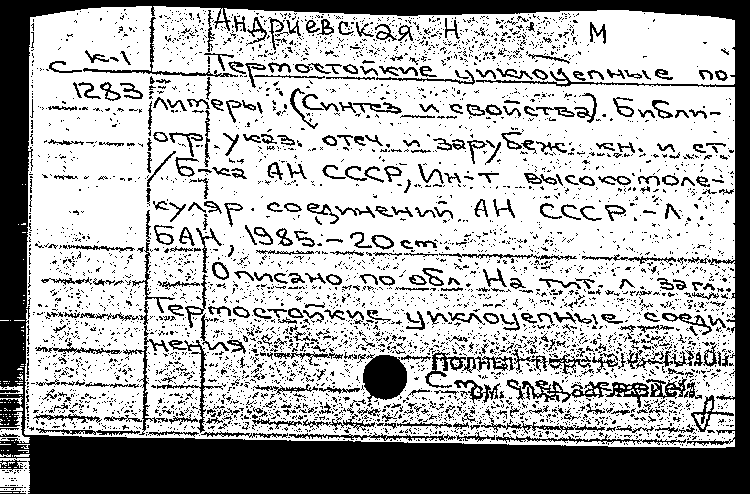 Андриевская Н М
с к-1 Термостойкие циклоцепные по-
1283 лимеры: (Синтез и свойства). Библи-
огр. указ. отеч. и зарубеж. кн. и ст.
/Б-ка АН СССР, Ин-т высокомоле-
куляр. соединений АН СССР.-Л.:
БАН, 1985.-20 см
Описано по обл. На тит. л. загл.:
Термостойкие циклоцепные соеди-
нения
Полный перечень
см. под